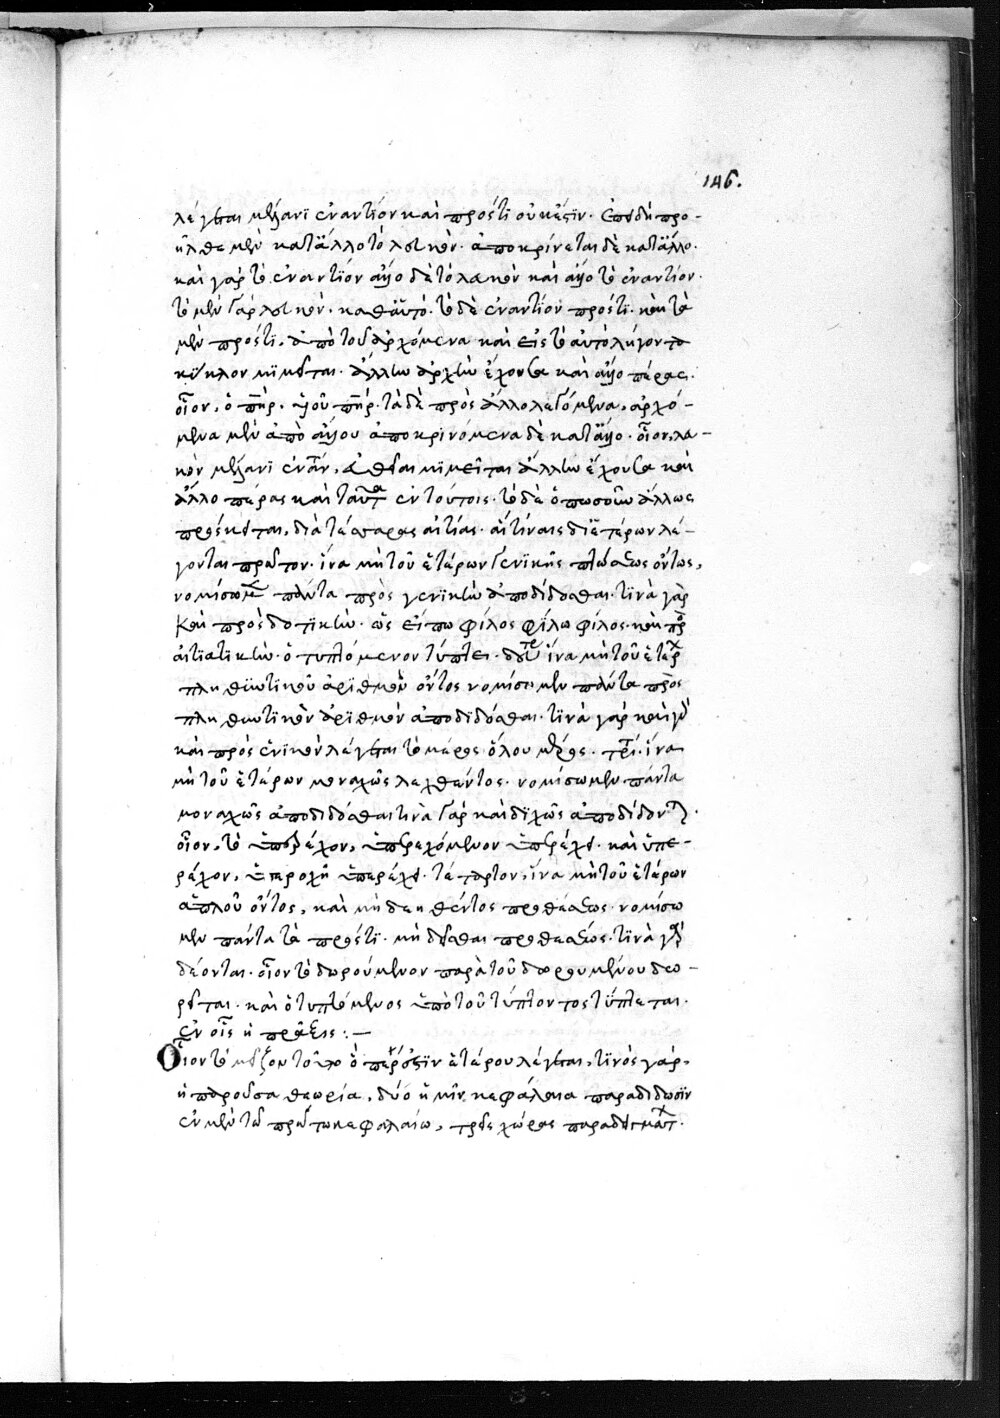 146.
λέγεται μέλανι ἐναντίον καὶ πρόστι οὐκ ἔστιν. ἐπειδὴ προ-
ῆλθε μὲν κατ' ἄλλο τὸ λευκόν. ἀποκρίνεται δὲ κατ' ἄλλο.
καὶ γὰρ τὸ ἐναντίον ἄλλο δὲ τὸ λευκὸν καὶ ἄλλο τὸ ἐναντίον.
τὸ μὲν γὰρ λευκὸν. καθ' αὑτό. τὸ δὲ ἐναντίον πρόστι. καὶ τὰ
μὲν πρόστι, ἀπὸ τοῦ ἀρχόμενα καὶ εἰς τὸ αὐτὸ λήγοντα
κύκλον μιμεῖται. ἄλλην ἀρχὴν ἔχοντα καὶ ἄλλο πέρας.
οἷον, ὁ πηρ. υἱοῦ πηρ. τὰ δὲ πρὸς ἄλλο λεγόμενα, ἀρχό-
μενα μὲν ἀπὸ ἄλλου ἀποκρινόμενα δὲ κατ' ἄλλο. οἷον, λευ-
κὸν μέλανι ἐναν, εὐθεῖαν μιμεῖται ἄλλην ἔχοντα καὶ
ἄλλο πέρας καὶ ταῦτα ἐν τούτοις. τὸ δὲ ὁπωσοῦν ἄλλως
πρόσκειται, διὰ τέσσαρας αἰτίας. αἵτινες δι' ἑτέρων λέ-
γονται πρῶτον. ἵνα μὴ τοῦ ἑτέρων γενικῆς πτώσεως ὄντος,
νομίσωμεν πάντα πρὸς γενικὴν ἀποδίδοσθαι. τινὰ γὰρ
καὶ πρὸς δοτικὴν. ὡς εἴπω φίλος φίλω φίλος. καὶ πρ
αἰτιατικὴν. ὁ τυπτόμενον τύπτει. δευτε ἵνα μὴ τοῦ ἑτέρ
πληθυντικοῦ ἀριθμοῦ ὄντος νομίσωμεν πάντα πρὸς
πληθυντικὸν ἀριθμὸν ἀποδίδοσθαι. τινὰ γὰρ
καὶ πρὸς ἑνικὸν λέγεται τὸ μέρος ὅλου μέρος. τρι. ἵνα
μὴ τοῦ ἑτέρων μοναχῶς λεχθέντος. νομίσωμεν πάντα
μοναχῶς ἀποδίδοσθαι τινὰ γὰρ καὶ διχῶς ἀποδίδον.
οἷον, τὸ ὑπερέχον, ὑπερεχόμενον ὑπερέχει. καὶ ὑπε-
ρέχον, ὑπεροχῆ ὑπερέχει. τέταρτον, ἵνα μὴ τοῦ ἑτέρων
ἁπλοῦ ὄντος, καὶ μὴ δεηθέντος προθέσεως. νομίσω
μεν πάντα τὰ πρόστι. μὴ δεῖσθαι προθέσεως. τινὰ γὰρ
δέονται. οἷον τὸ δωρούμενον παρὰ τοῦ δωρουμένου δω-
ρεῖται. καὶ ὁ τυπτόμενος ὑπὸ τοῦ τύπτοντος τύπτεται.
ἐν οἷς ἡ πρᾶξις :—
Οἷον τὸ μεῖζον τοῦθ' ὅπερ ἐστὶν ἑτέρου λέγεται, τινὸς γάρ.
ἡ παροῦσα θεωρία, δύο ἡμῖν κεφάλαια παραδίδωσιν
ἐν μὲν τῶ πρώτω κεφαλαίω, τρεῖς χώρας παραδειγματ.